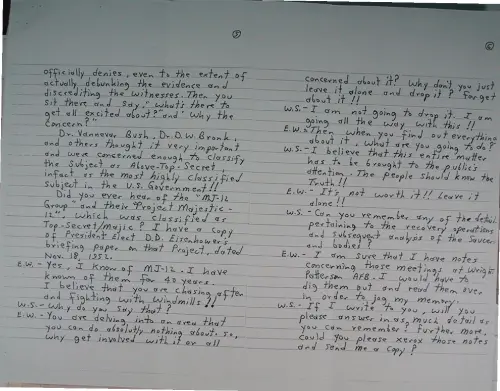 ⑤
officially denies, even to the extent of
actually debunking the evidence and
discrediting the witnesses. Then you
sit there and say, "what's there to
get all excited about?" and "Why the
Concern?"
Dr. Vannevar Bush, Dr. D.W. Bronk,
and others thought it very important
and were concerned enough to classify
the Subject as Above-Top-Secret,
infact as the most highly classified
Subject in the U.S. Government!!
Did you ever hear of the "MJ-12
Group" and their "Project Majestic-
12", which was classified as
Top-Secret/Majic? I have a copy
of President Elect D.D. Eisenhower's
briefing paper on that Project, dated
Nov. 18, 1952.
E.W. - Yes, I know of MJ-12. I have
known of them for 40 years.
I believe that you are chasing after
and fighting with Windmills!!
W.S. - Why do you say that?
E.W. - You are delving into an area that
you can do absolutly nothing about. So,
why get involved with it or all
⑥
concerned about it? Why don't you just
leave it alone and drop it? Forget
about it!!
W.S. - I am not going to drop it. I am
going all the way with this!!
E.W. - Then when you find out everything
about it, what are you going to do?
W.S. - I believe that this entire matter
has to be brought to the public's
attention. The people should know the
Truth!!
E.W. - It's not worth it!! Leave it
alone!!
W.S. - Can you remember any of the detail
pertaining to the recovery operations
and subsequent analysis of the Saucer
and bodies?
E.W. - I am sure that I have notes
concerning those meetings at Wright
Patterson AFB. I would have to
dig them out and read them over
in order to jog my memory.
W.S. - If I write to you, will you
please answer in as much detail as
you can remember? Further more,
could you please xerox those notes
and send me a copy?